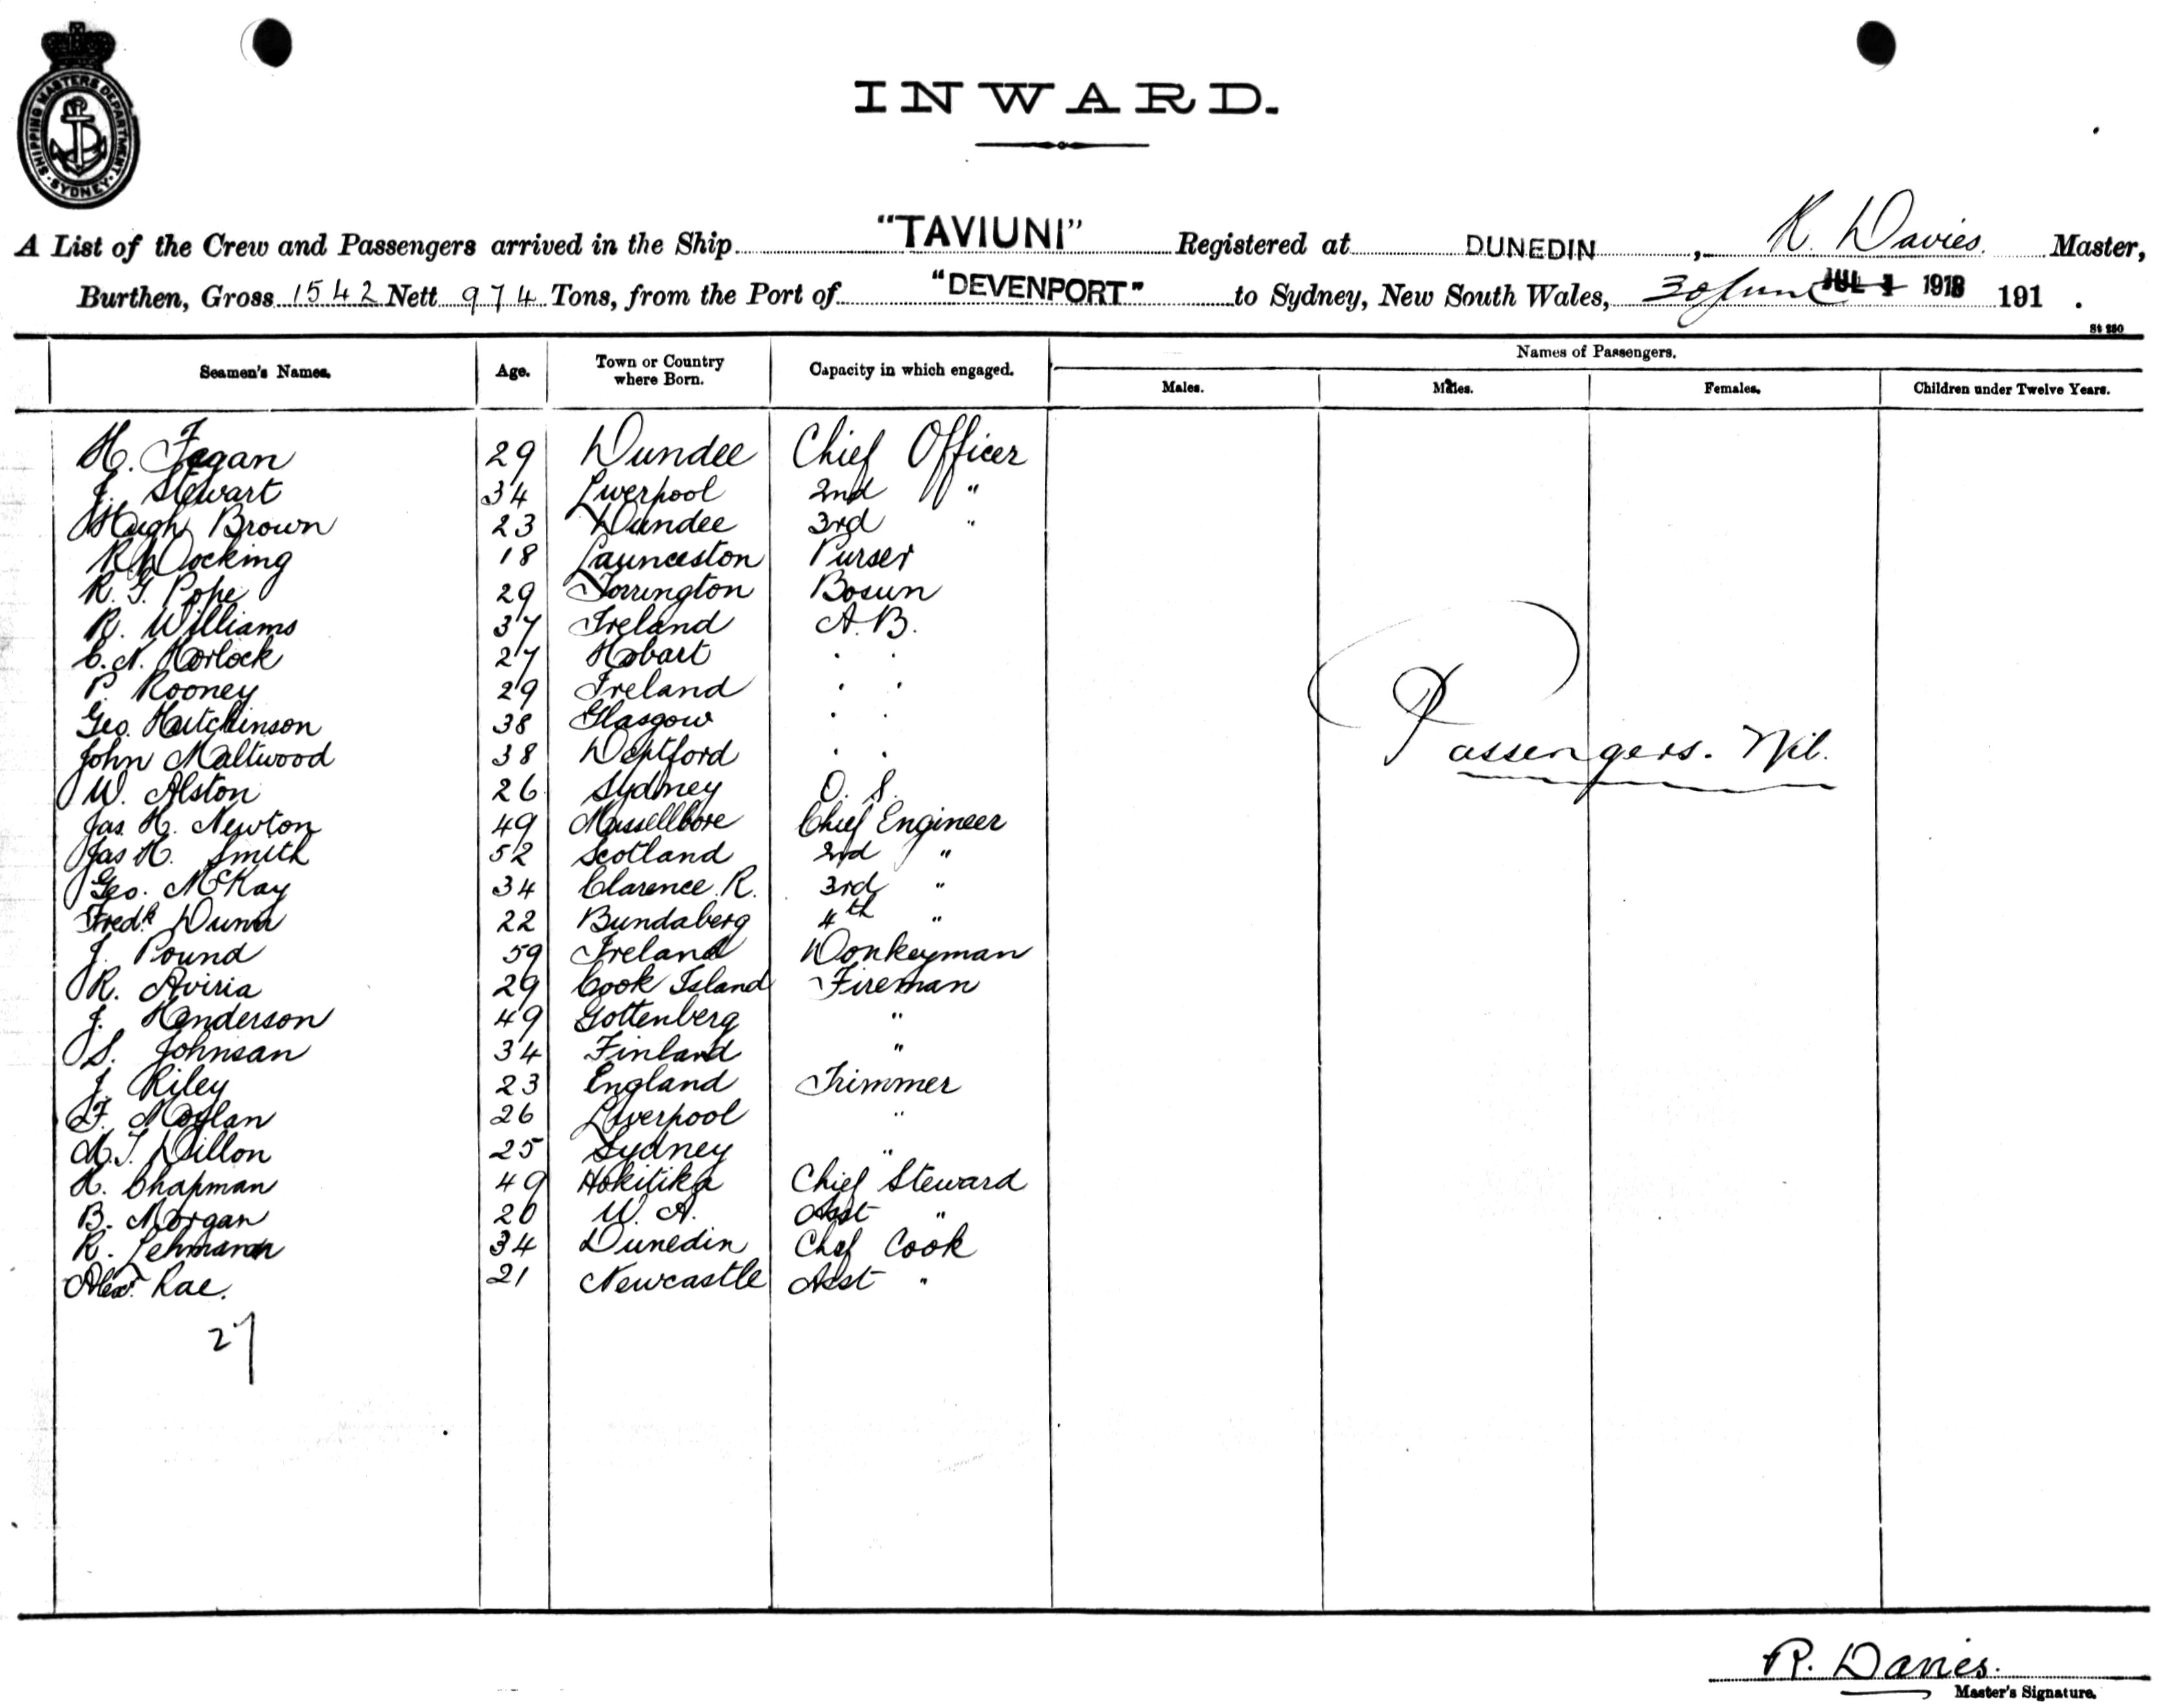 SHIPPING MASTERS DEPARTMENT · SYDNEY ·
INWARD.
A List of the Crew and Passengers arrived in the Ship "TAVIUNI" Registered at DUNEDIN, R. Davies. Master,
Burthen, Gross 1542 Nett 974 Tons, from the Port of "DEVENPORT" to Sydney, New South Wales, 30 June JUL 1 1918 191 .
St 280
Seamen's Names. Age. Town or Country where Born. Capacity in which engaged. Names of Passengers.
Males. Males. Females. Children under Twelve Years.
H. Fegan 29 Dundee Chief Officer
J. Stewart 34 Liverpool 2nd "
Hugh Brown 23 Dundee 3rd "
R. Docking 18 Launceston Purser
R. G. Pope 29 Torrington Bosun
R. Williams 37 Ireland A.B.
C. N. Horlock 27 Hobart . .
P. Rooney 29 Ireland . .
Geo. Hutchinson 38 Glasgow . .
John Maltwood 38 Deptford . .
W. Alston 26 Sydney O. S.
Jas. H. Newton 49 Chief Engineer
Jas H. Smith 52 Scotland 2nd "
Geo. McKay 34 Clarence R. 3rd "
Fredk. Dunn 22 Bundaberg 4th "
J. Pound 59 Ireland Donkeyman
R. Aviria 29 Cook Island Fireman
J. Henderson 49 Gottenberg "
S. Johnsan 34 Finland "
J. Riley 23 England Trimmer
F. Moylan 26 Liverpool "
M. J. Dillon 25 Sydney "
H. Chapman 49 Hokitika Chief Steward
B. Morgan 20 W. A. Asst "
R. Lehmann 34 Dunedin Chef Cook
Alexr. Rae. 21 Newcastle Asst "
27
Passengers. Nil.
R. Davies.
Master's Signature.